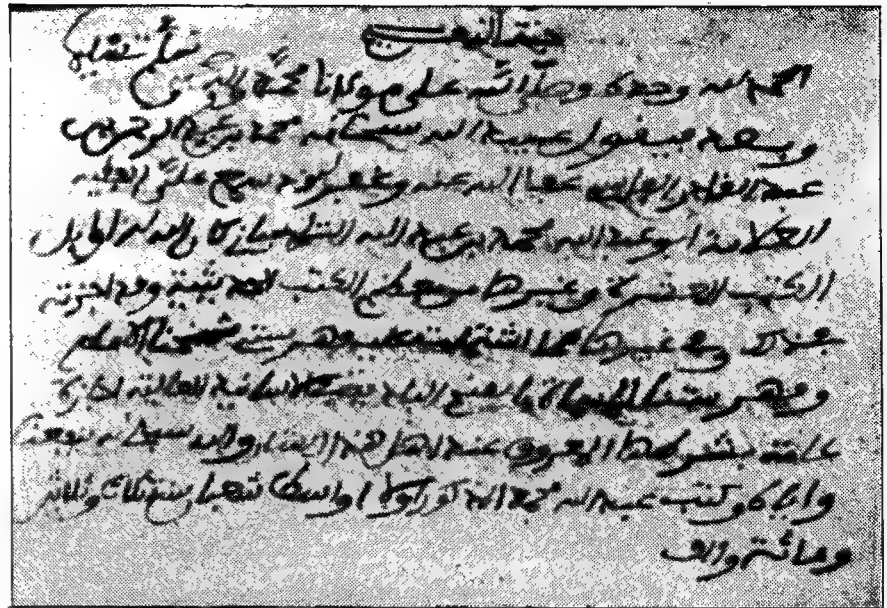 الحمد لله وحده وصلى الله على مولانا محمد وآله
وبعد فيقول عبيد الله سبحانه محمد بن عبد الرحمن بن
عبد القادر الفاسي عفا الله عنه وغفر له قد سمع علي الفقيه
العلامة أبو عبد الله محمد بن عبد الله كان الله له أوائل
الكتب العشرة وغيرها من معظم الكتب الحديثية وقد أجزته
بذلك وبغيرها مما اشتملت عليه فهرسة شيخنا الإمام
وفهرستنا المسماة بالمنح البادية في الأسانيد العالية إجازة
عامة بشرطها المعروف عند أهل هذا الشأن والله سبحانه ينفعنا
وإياه وكتب عبد الله محمد المذكور أواسط شعبان سنة ثلاث وثلاثين
ومائة وألف